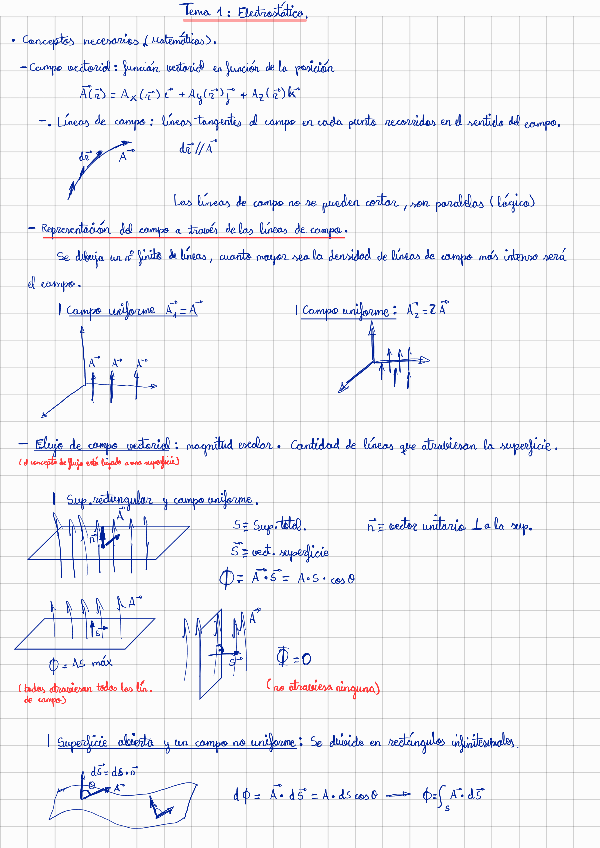 Tema 1: Electrostática.
• Conceptos necesarios (Matemáticas).
- Campo vectorial: función vectorial en función de la posición
A⃗(r⃗) = Ax(r⃗) i⃗ + Ay(r⃗) j⃗ + Az(r⃗) k⃗
-. Líneas de campo: líneas tangentes al campo en cada punto recorridas en el sentido del campo.
dr⃗ A⃗ dr⃗ // A⃗
Las líneas de campo no se pueden cortar, son paralelas (lógico)
- Representación del campo a través de las líneas de campo.
Se dibuja un nº finito de líneas, cuanto mayor sea la densidad de líneas de campo más intenso será
el campo.
| Campo uniforme A⃗₁ = A⃗ | Campo uniforme: A⃗₂ = 2A⃗
A⃗ A⃗ A⃗
- Flujo de campo vectorial: magnitud escalar. Cantidad de líneas que atraviesan la superficie.
(el concepto de flujo está ligado a una superficie)
| Sup. rectangular y campo uniforme.
n⃗ A⃗ S ≡ Sup. total. n⃗ ≡ vector unitario ⊥ a la sup.
S⃗ ≡ vect. superficie
Φ = A⃗ · S⃗ = A · S · cos θ
A⃗ S⃗ A⃗ S⃗
Φ = AS máx Φ⃗ = 0
(todas atraviesan todas las lín. (no atraviesa ninguna)
de campo)
| Superficie abierta y un campo no uniforme: Se divide en rectángulos infinitesimales.
dS⃗ = dS · n⃗
θ A⃗ dΦ = A⃗ · dS⃗ = A · dS cos θ → Φ = ∫S A⃗ · dS⃗